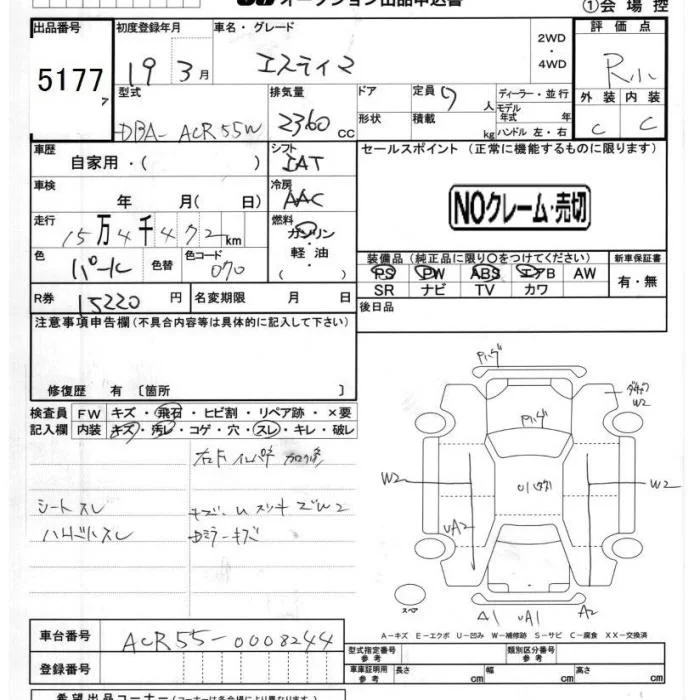 オークション出品申込書
①会場控
出品番号 初度登録年月 車名・グレード 2WD ・ 4WD 評価点
5177 ァ 19年3月 エスティマ R小
型式 DBA-ACR55W 排気量 2360cc ドア 定員 7人 ディーラー・並行 外装 内装
形状 積載 kg モデル年式 年 ハンドル 左・右 C C
車歴 自家用・( ) シフト IAT セールスポイント (正常に機能するものに限ります)
車検 年 月( 日) 冷房 AAC
NOクレーム・売切
走行 15万4千472km 燃料 ガソリン・軽油
色 パール 色替 色コード 070 装備品 (純正品に限り〇をつけてください) 新車保証書
PS PW ABS エアB AW 有・無
SR ナビ TV カワ
R券 15220円 名変期限 月 日 後日品
注意事項申告欄 (不具合内容等は具体的に記入して下さい)
修復歴 有 〔箇所 〕
検査員 FW キズ・飛石・ヒビ割・リペア跡・×要
記入欄 内装 キズ・汚レ・コゲ・穴・スレ・キレ・破レ
シートスレ
Pハゲ
W2
Pハゲ
W2 W2
UA2
スペア A1 UA1 A2
A-キズ E-エクボ U-凹み W-補修跡 S-サビ C-腐食 XX-交換済
車台番号 ACR55-0008244 型式指定番号 参考 類別区分番号 参考
登録番号 車庫証明用 参考 長さ cm 幅 cm 高さ cm
希望出品コーナー